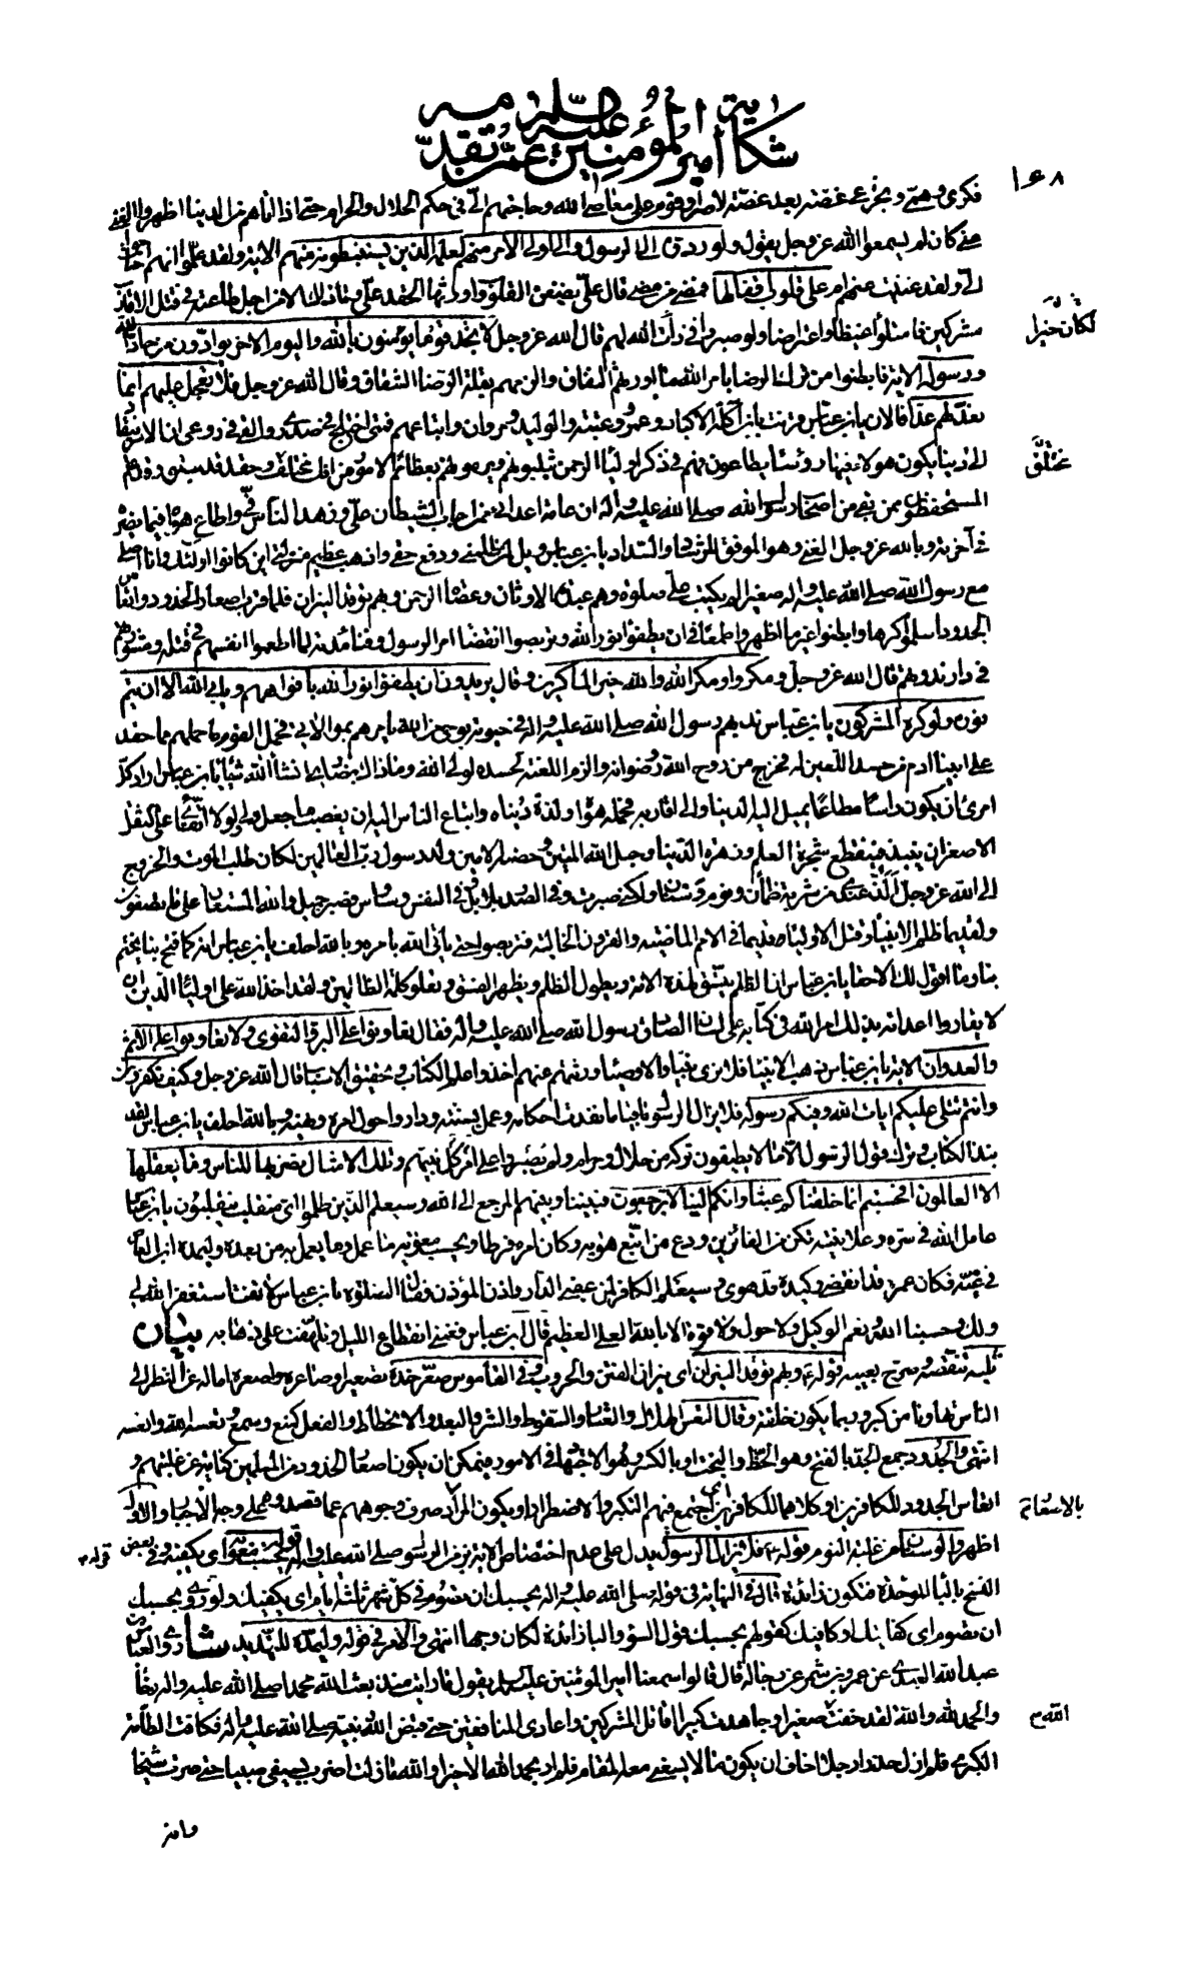 شكاية أمير المؤمنين عليه السلام عمن تقدمه
١٥٨
فكرى وهمى وتجرعى غصة بعد غصة لامر او قوم على معاصى الله وحاجتهم الى فى حكم الحلال والحرام حتى اذا اتاهم من الدنيا اظهروا الغنى
كان لم يسمعوا الله عز وجل يقول ولو ردوه الى الرسول والى اولى الامر منهم لعلمه الذين يستنبطونه منهم الاية ولقد علموا انهم احتاجوا
الى ولقد غنيت عنهم ام على قلوب اقفالها فمضى من مضى قال على بضغن القلوب واورثها الحقد على وما ذلك الا من اجل طاعته فى قتل الاقارب
مشركين فامتلأوا غيظا واعتراضا ولو صبروا فى ذات الله لهم قال الله عز وجل لا تجد قوما يؤمنون بالله واليوم الاخر يوادون من حاد الله
لكان خيرا
ورسوله الاية فابطنوا من ترك الرضا بامر الله ما اورثهم النفاق والزمهم بقلة الرضا الشقاق وقال الله عز وجل فلا تعجل عليهم انما
نعد لهم عدا فالان يا بن عباس قرنت بابن اكلة الاكباد وعمرو وعتبة والوليد ومروان واتباعهم فمتى اختلج فى صدرى والقى فى روعى ان الامر ينقاد
الى دنيا يكون هولاء فيها رؤسا يطاعون فهم فى ذكر اولياء الرحمن يثلبونهم ويرمونهم بعظائم الامور من افك مختلف وحقد قد سبق وقد علم
مختلق
المستحفظون ممن بقى من اصحاب رسول الله صلى الله عليه واله ان عامة اعدائى ممن اجاب الشيطان على وزهد الناس فى واطاع هواه فيما يضره
فى آخرته وبالله عز وجل الغنى وهو الموفق للرشاد والسداد يا بن عباس ويل لمن ظلمنى ودفع حقى واذهب عظيم منزلتى اين كانوا اولئك وانا اصلى
مع رسول الله صلى الله عليه واله صغيرا لم يكتب على صلوة وهم عبدة الاوثان وعصاة الرحمن وبهم توقد النيران فلما قرب اصعار الخدود واتعاس
الجدود اسلموا كرها وابطنوا غير ما اظهروا طمعا فى ان يطفؤا نور الله وتربصوا انقضاء امر الرسول وفناء مدته لما اطمعوا انفسهم فى قتله ومشورتهم
فى دار ندوتهم قال الله عز وجل ومكروا ومكر الله والله خير الماكرين وقال يريدون ان يطفؤا نور الله بافواههم ويابى الله الا ان يتم
نوره ولو كره المشركون يا بن عباس ندبهم رسول الله صلى الله عليه واله فى حيوته بوحى من الله يامرهم بموالاتى فحمل القوم ما حملهم مما حقد
على ابينا ادم من حسد اللعين له فخرج من روح الله ورضوانه والزم اللعنة لحسده لولى الله وما ذاك بضارى ان شاء الله شيئا يا بن عباس اراد كل
امرئ ان يكون راسا مطاعا يميل اليه الدنيا والى اقاربه فحمله هواه ولذة دنياه واتباع الناس اليه ان يغصب ما جعل لى ولولا اتقائى على الثقل
الاصغر ان ينبذ فينقطع شجرة العلم وزهرة الدنيا وحبل الله المتين وحصنه الامين ولد رسول رب العالمين لكان طلب الموت والخروج
الى الله عز وجل الذ عندى من شربة ظمآن ونوم وسنان ولكنى صبرت وفى الصدر بلابل وفى النفس وساوس فصبر جميل والله المستعان على ما تصفون
ولقديما ظلم الانبياء وقتل الاولياء قديما فى الامم الماضية والقرون الخالية فتربصوا حتى يأتى الله بامره وبالله احلف يا بن عباس انه كما فتح بنا يختم
بنا وما اقول لك الا حقا يا بن عباس ان الظلم يتسق لهذه الامة ويطول الظلم ويظهر الفسق وتعلو كلمة الظالمين ولقد اخذ الله على اولياء الدين ان
لا يقاروا اعدائه بذلك امر الله فى كتابه على لسان الصادق رسول الله صلى الله عليه واله فقال تعاونوا على البر والتقوى ولا تعاونوا على الاثم
والعدوان الاية يا بن عباس ذهب الانبياء فلا ترى نبيا والاوصياء ورثتهم عنهم اخذوا علم الكتاب وتحقيق الاسباب قال الله عز وجل وكيف تكفرون
وانتم تتلى عليكم ايات الله وفيكم رسوله فلا يزال الرسول باقيا ما نفذت احكامه وعمل بسنته وداروا حول امره ونهيه وبالله احلف يا بن عباس لقد
نبذ الكتاب وترك قول الرسول الا ما لا يطيقون تركه من حلال وحرام ولم يصبروا على كل امر نبيهم وتلك الامثال نضربها للناس وما يعقلها
الا العالمون افحسبتم انما خلقناكم عبثا وانكم الينا لا ترجعون فبيننا وبينهم المرجع الى الله وسيعلم الذين ظلموا اى منقلب ينقلبون يا بن عباس
عامل الله فى سره وعلانيته تكن من الفائزين ودع من اتبع هواه وكان امره فرطا ويحسب معوية ما عمل وما يعمل به من بعده وليمده ابن العاص
فى غيه فكان عمره قد انقضى وكيده قد هوى وسيعلم الكافر لمن عقبى الدار واذن المؤذن فقال الصلوة يا بن عباس لا تفت استغفر الله لى
ولك وحسبنا الله ونعم الوكيل ولا حول ولا قوة الا بالله العلى العظيم قال ابن عباس فغمنى انقطاع الليل وتلهفت على ذهابه بيان
ثلبه تنقصه وصرح بعيبه قوله ع وبهم توقد النيران اى نيران الفتن والحروب وفى القاموس صعر خده تصعيرا وصاعره واصعره اماله عن النظر الى
الناس تهاونا من كبر وربما يكون خلقة وقال التعس الهلاك والعثار والسقوط والشر والبعد والانحطاط والفعل كمنع وسمع وتعسه الله واتعسه
انتهى والجدود جمع الجد بالفتح وهو الحظ والبخت او بالكسر وهو الاجتهاد فى الامور فيمكن ان يكون اصعار الخدود من المسلمين كناية عن غلبتهم و
اتعاس الجدود للكافرين او كلاهما للكافرين اى اجتمع فيهم التكبر والاضطرار او يكون المراد صرف وجوههم عما قصدوه على وجه الاجبار والاول
بالاستعانة
اظهر والوسنان من غلبه النوم قوله ع فلا يزال الرسول يدل على عدم اختصاص الاية بزمن الرسول صلى الله عليه واله قوله يحسب معوية اى يكفيه وفى بعض
قوله
النسخ بالباء الموحدة فتكون زائدة قال فى النهاية فى قوله صلى الله عليه واله يحسبك ان تصوم فى كل شهر ثلثة ايام اى يكفيك ولو روى بحسبك
ان تصوم اى كفايتك او كافيك كقولهم بحسبك قول السوء والباء زائدة لكان وجها انتهى والامر فى قوله وليمده للتهديد شا روى العباس بن
عبد الله العبدى عن عمرو بن شمر عن رجاله قال قالوا سمعنا امير المؤمنين عليه السلام يقول ما رايت منذ بعث الله محمدا صلى الله عليه واله رخاء
والحمد لله والله لقد خفت صغيرا وجاهدت كبيرا اقاتل المشركين واعادى المنافقين حتى قبض الله نبيه صلى الله عليه واله فكانت الطامة
الله م
الكبرى فلم ازل حذرا وجلا اخاف ان يكون ما لا يسعنى معه المقام فلم ار بحمد الله الا خيرا والله ما زلت اضرب بسيفى صبيا حتى صرت شيخا
وانه